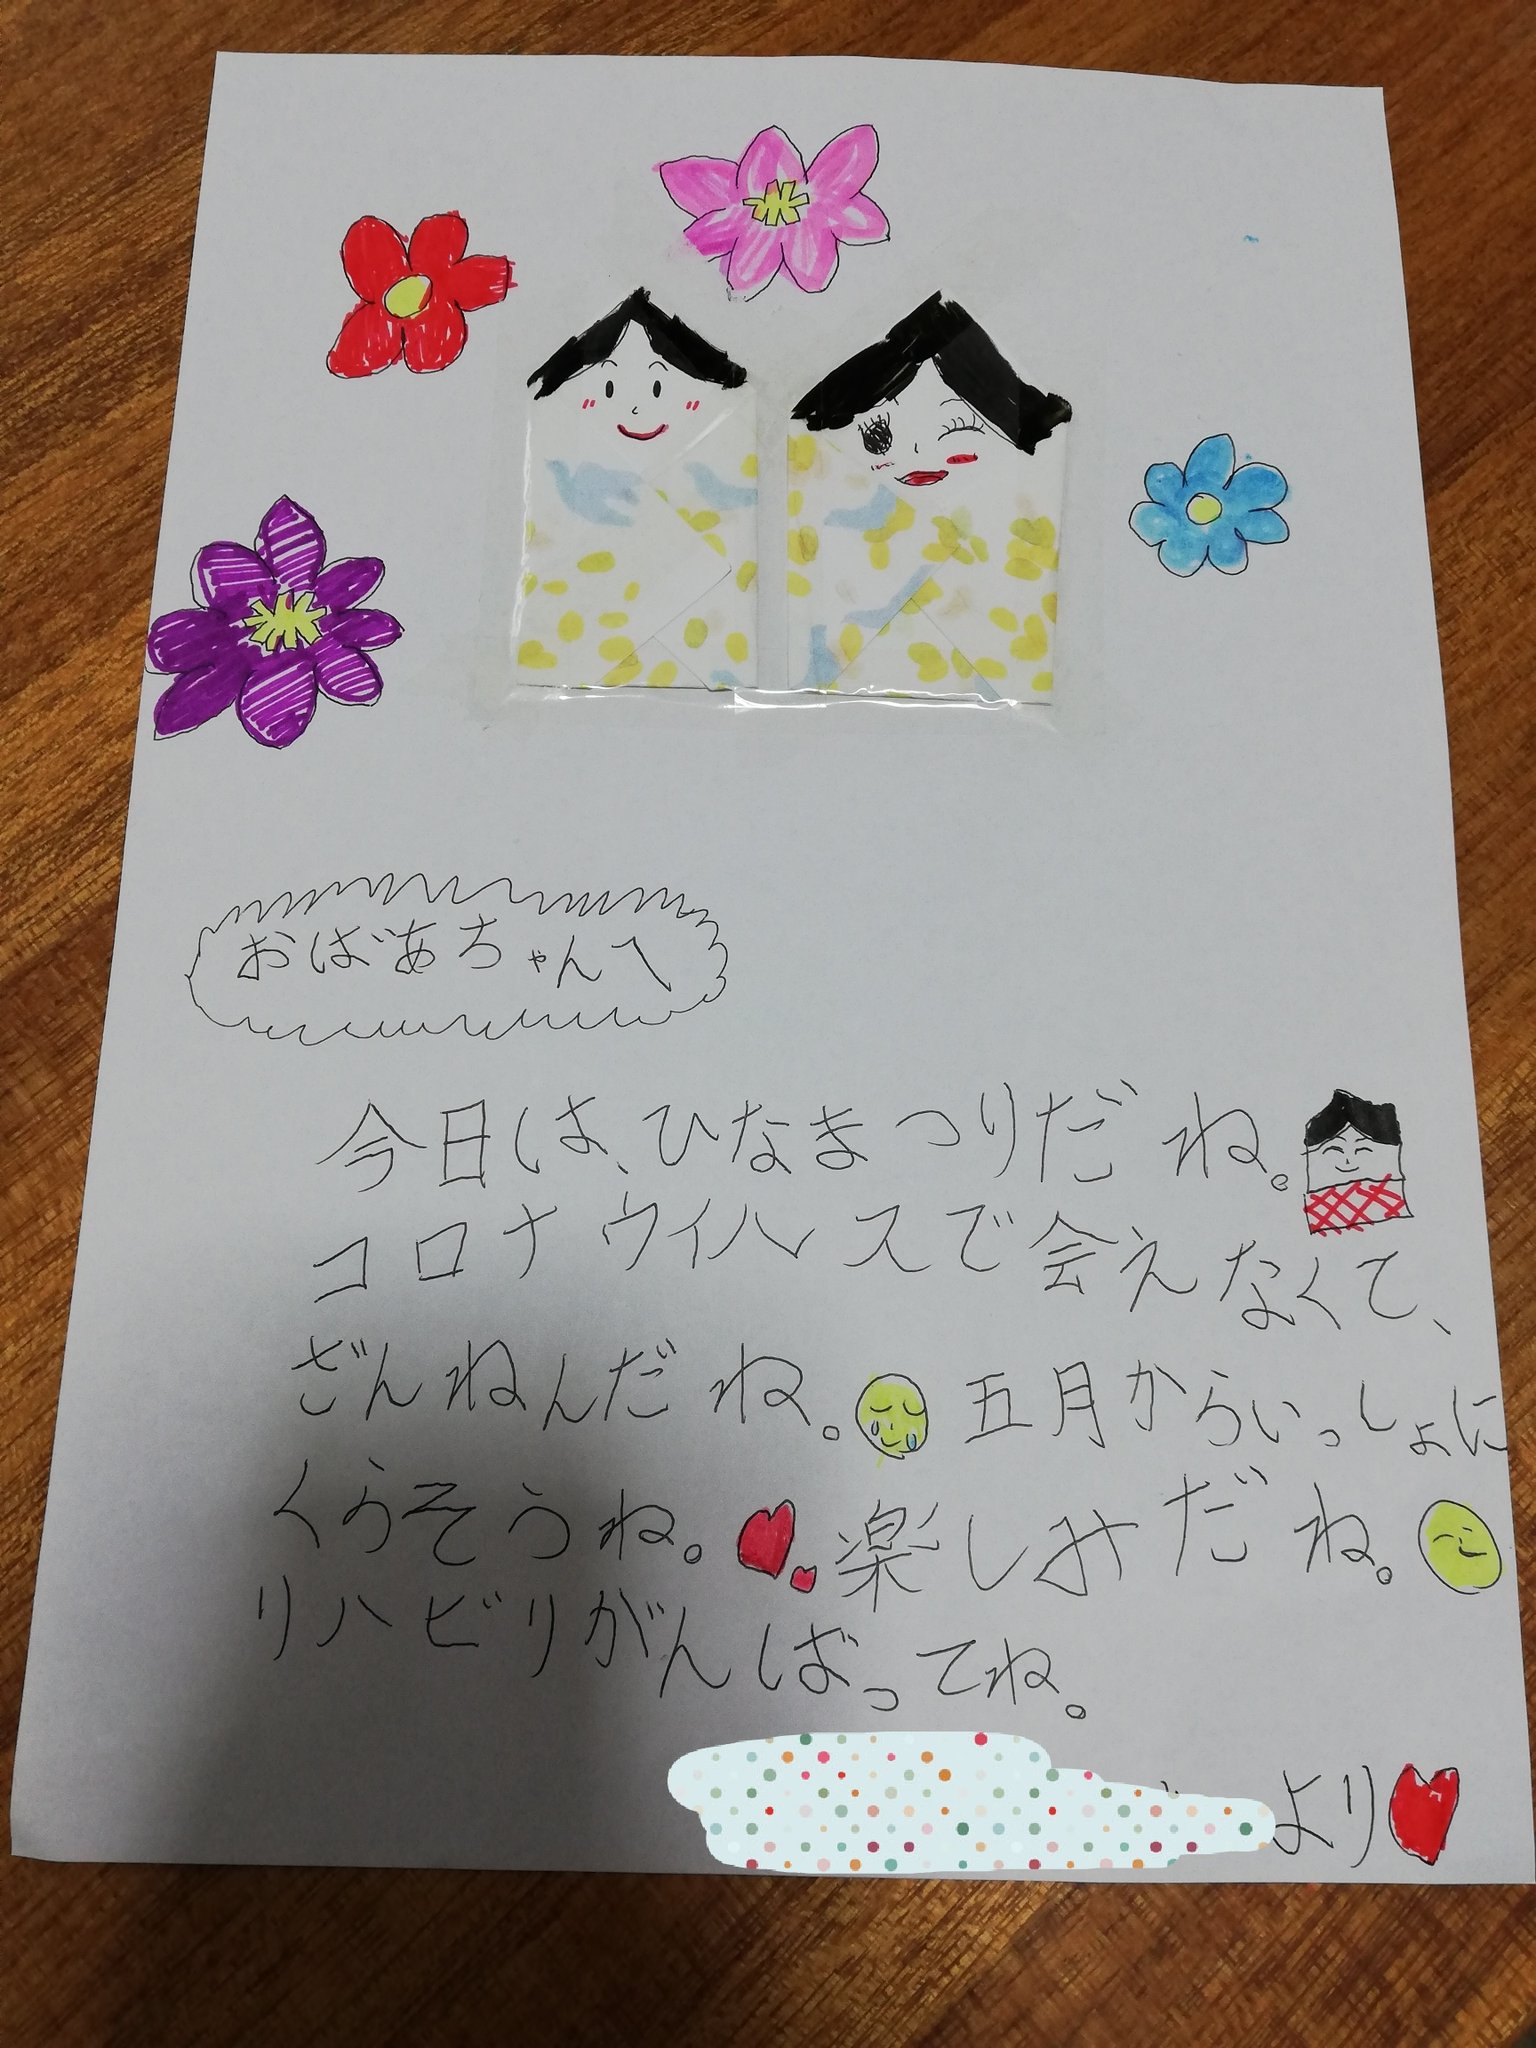 おばあちゃんへ
今日は、ひなまつりだね。
コロナウイルスで会えなくて、
ざんねんだね。五月からいっしょに
くらそうね。楽しみだね。
リハビリがんばってね。
より